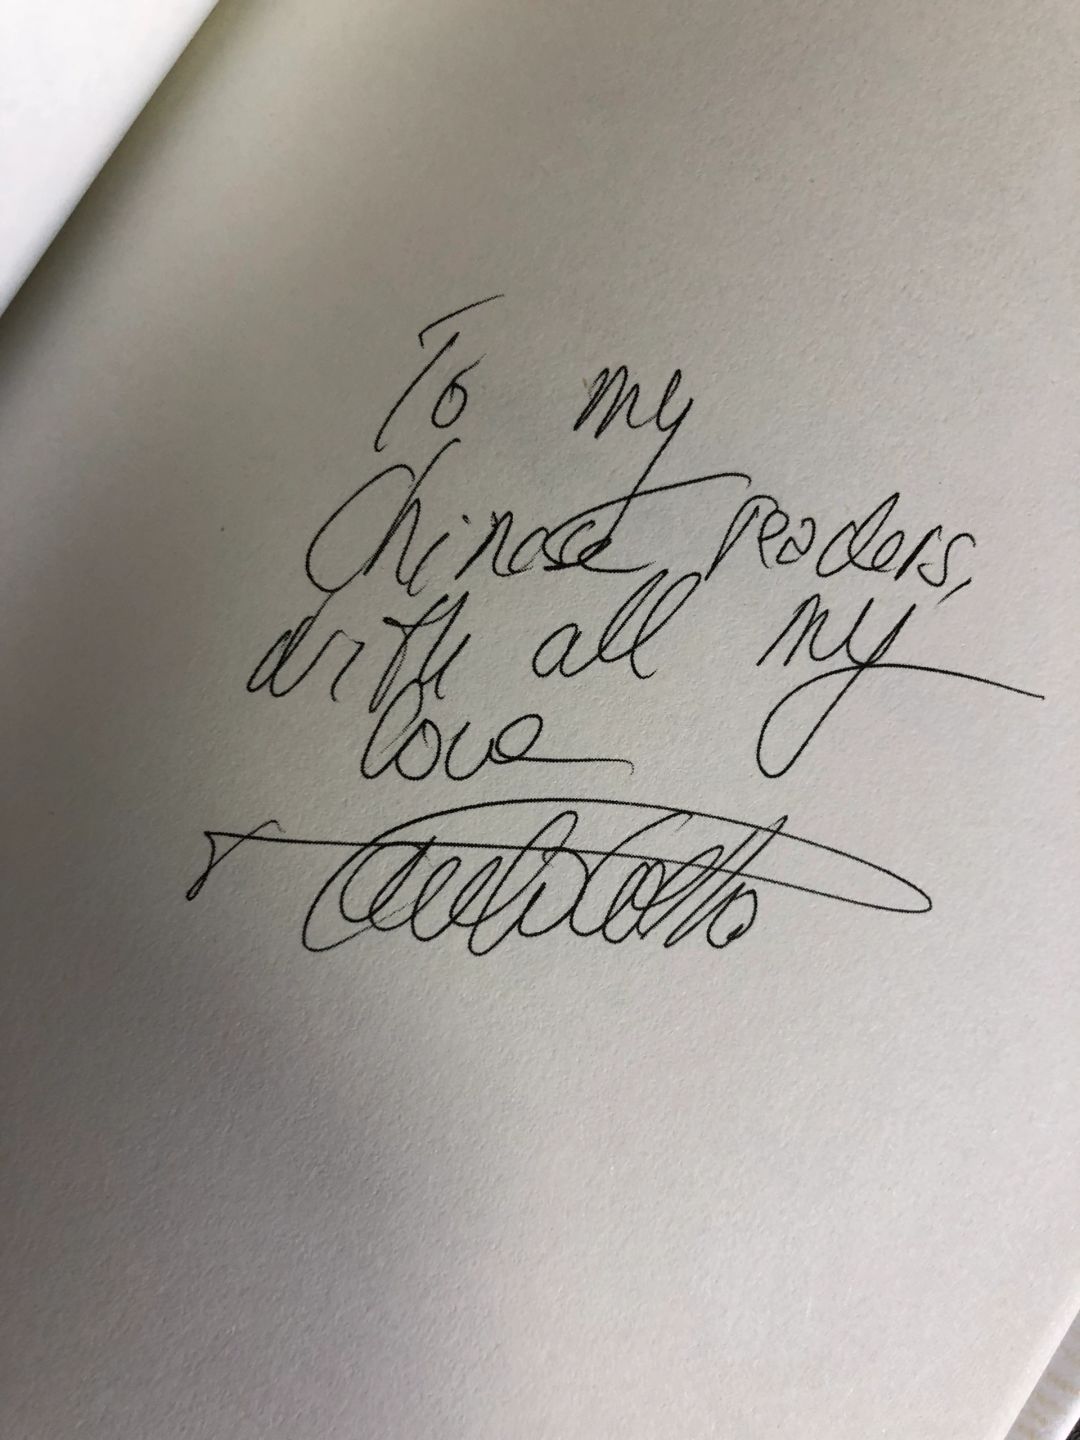 To my
Chinese readers,
with all my
love